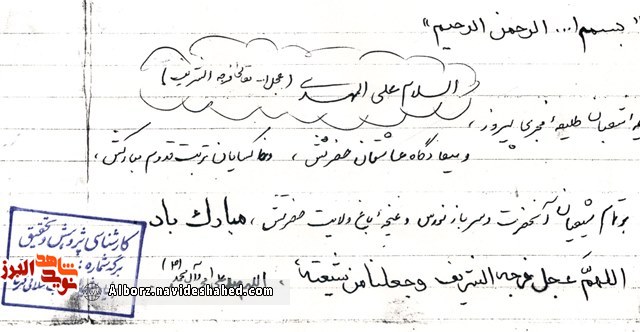 "بسم ا... الرحمن الرحیم"
السلام علی المهدی (عجل ا... تعالی فرجه الشریف)
طلیعه فجری پیروز،
و میعادگاه عاشقان حضرتش، و خاکسایان تربت قدوم مبارکش،
بر تمام شیعیان آنحضرت و سرباز نورس و غنچه باغ ولایت حضرتش، مبارک باد
اللهمّ عجل فرجه الشریف و جعلنا من شیعته،
کارشناسی پژوهش و تحقیق
برگه شماره:
نوید شاهد البرز
Alborz.navideshahed.com